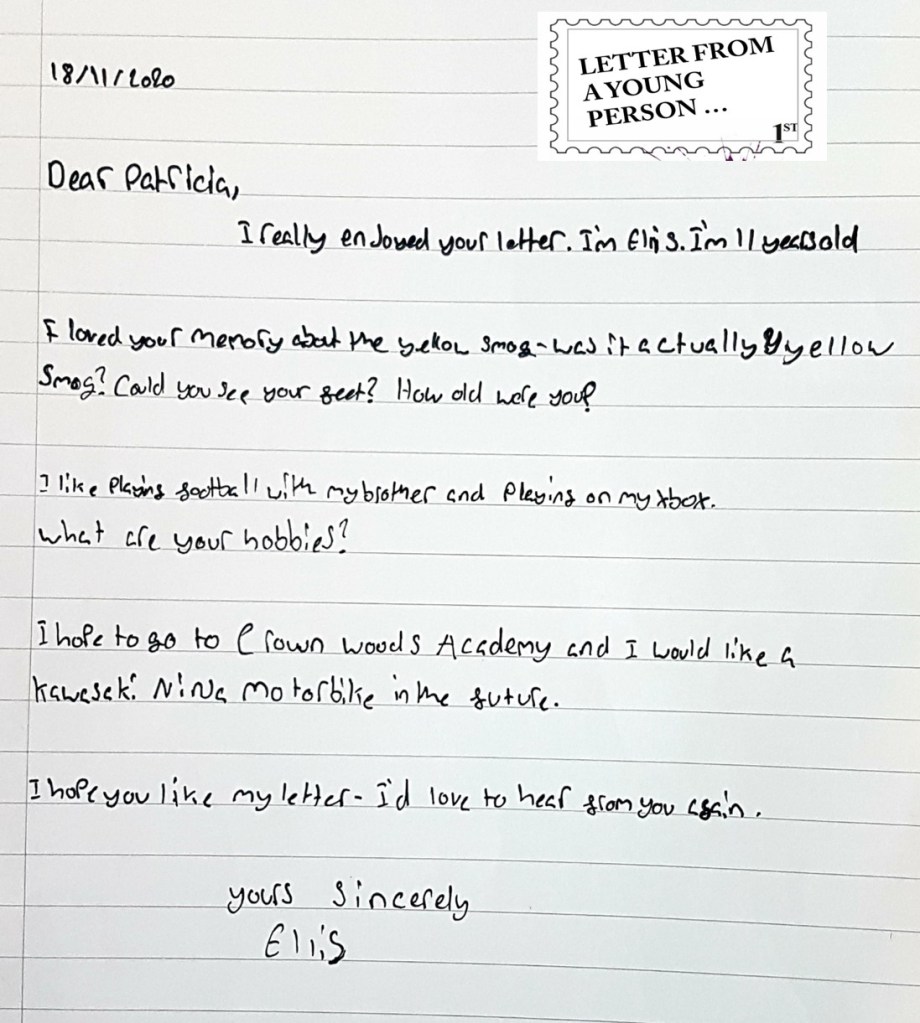 18/11/2020
LETTER FROM
A YOUNG
PERSON ...
1ST
Dear Patricia,
I really enjoyed your letter. I'm Ellis. I'm 11 years old
I loved your memory about the yellow smog - was it actually yellow
smog? Could you see your feet? How old were you?
I like playing football with my brother and playing on my xbox.
what are your hobbies?
I hope to go to Crown woods Academy and I would like a
Kawasaki NiNja motorbike in the future.
I hope you like my letter - I'd love to hear from you again.
yours sincerely
Ellis